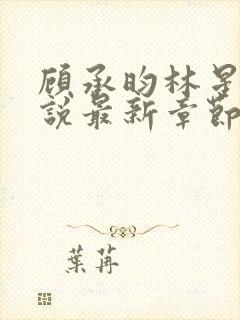 顾承昀林星
說最新章節
葉苒